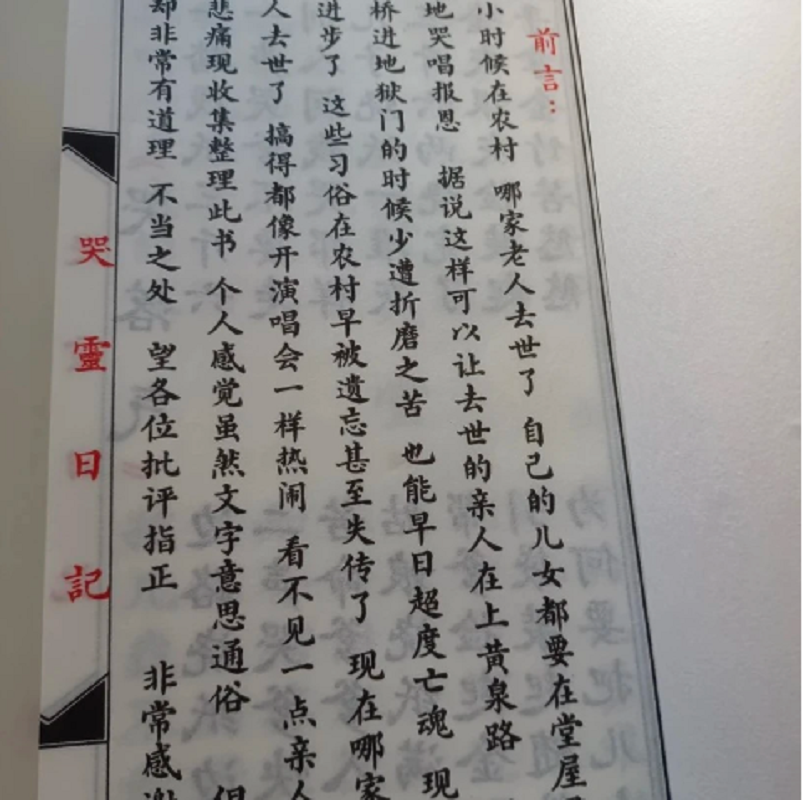 前言：
小时候在农村 哪家老人去世了 自己的儿女都要在堂屋
地哭唱报恩 据说这样可以让去世的亲人在上黄泉路
桥进地狱门的时候少遭折磨之苦 也能早日超度亡魂 现
进步了 这些习俗在农村早被遗忘甚至失传了 现在哪家
人去世了 搞得都像开演唱会一样热闹 看不见一点亲人
悲痛现收集整理此书 个人感觉虽然文字意思通俗 但
却非常有道理 不当之处 望各位批评指正 非常感谢
哭靈日記